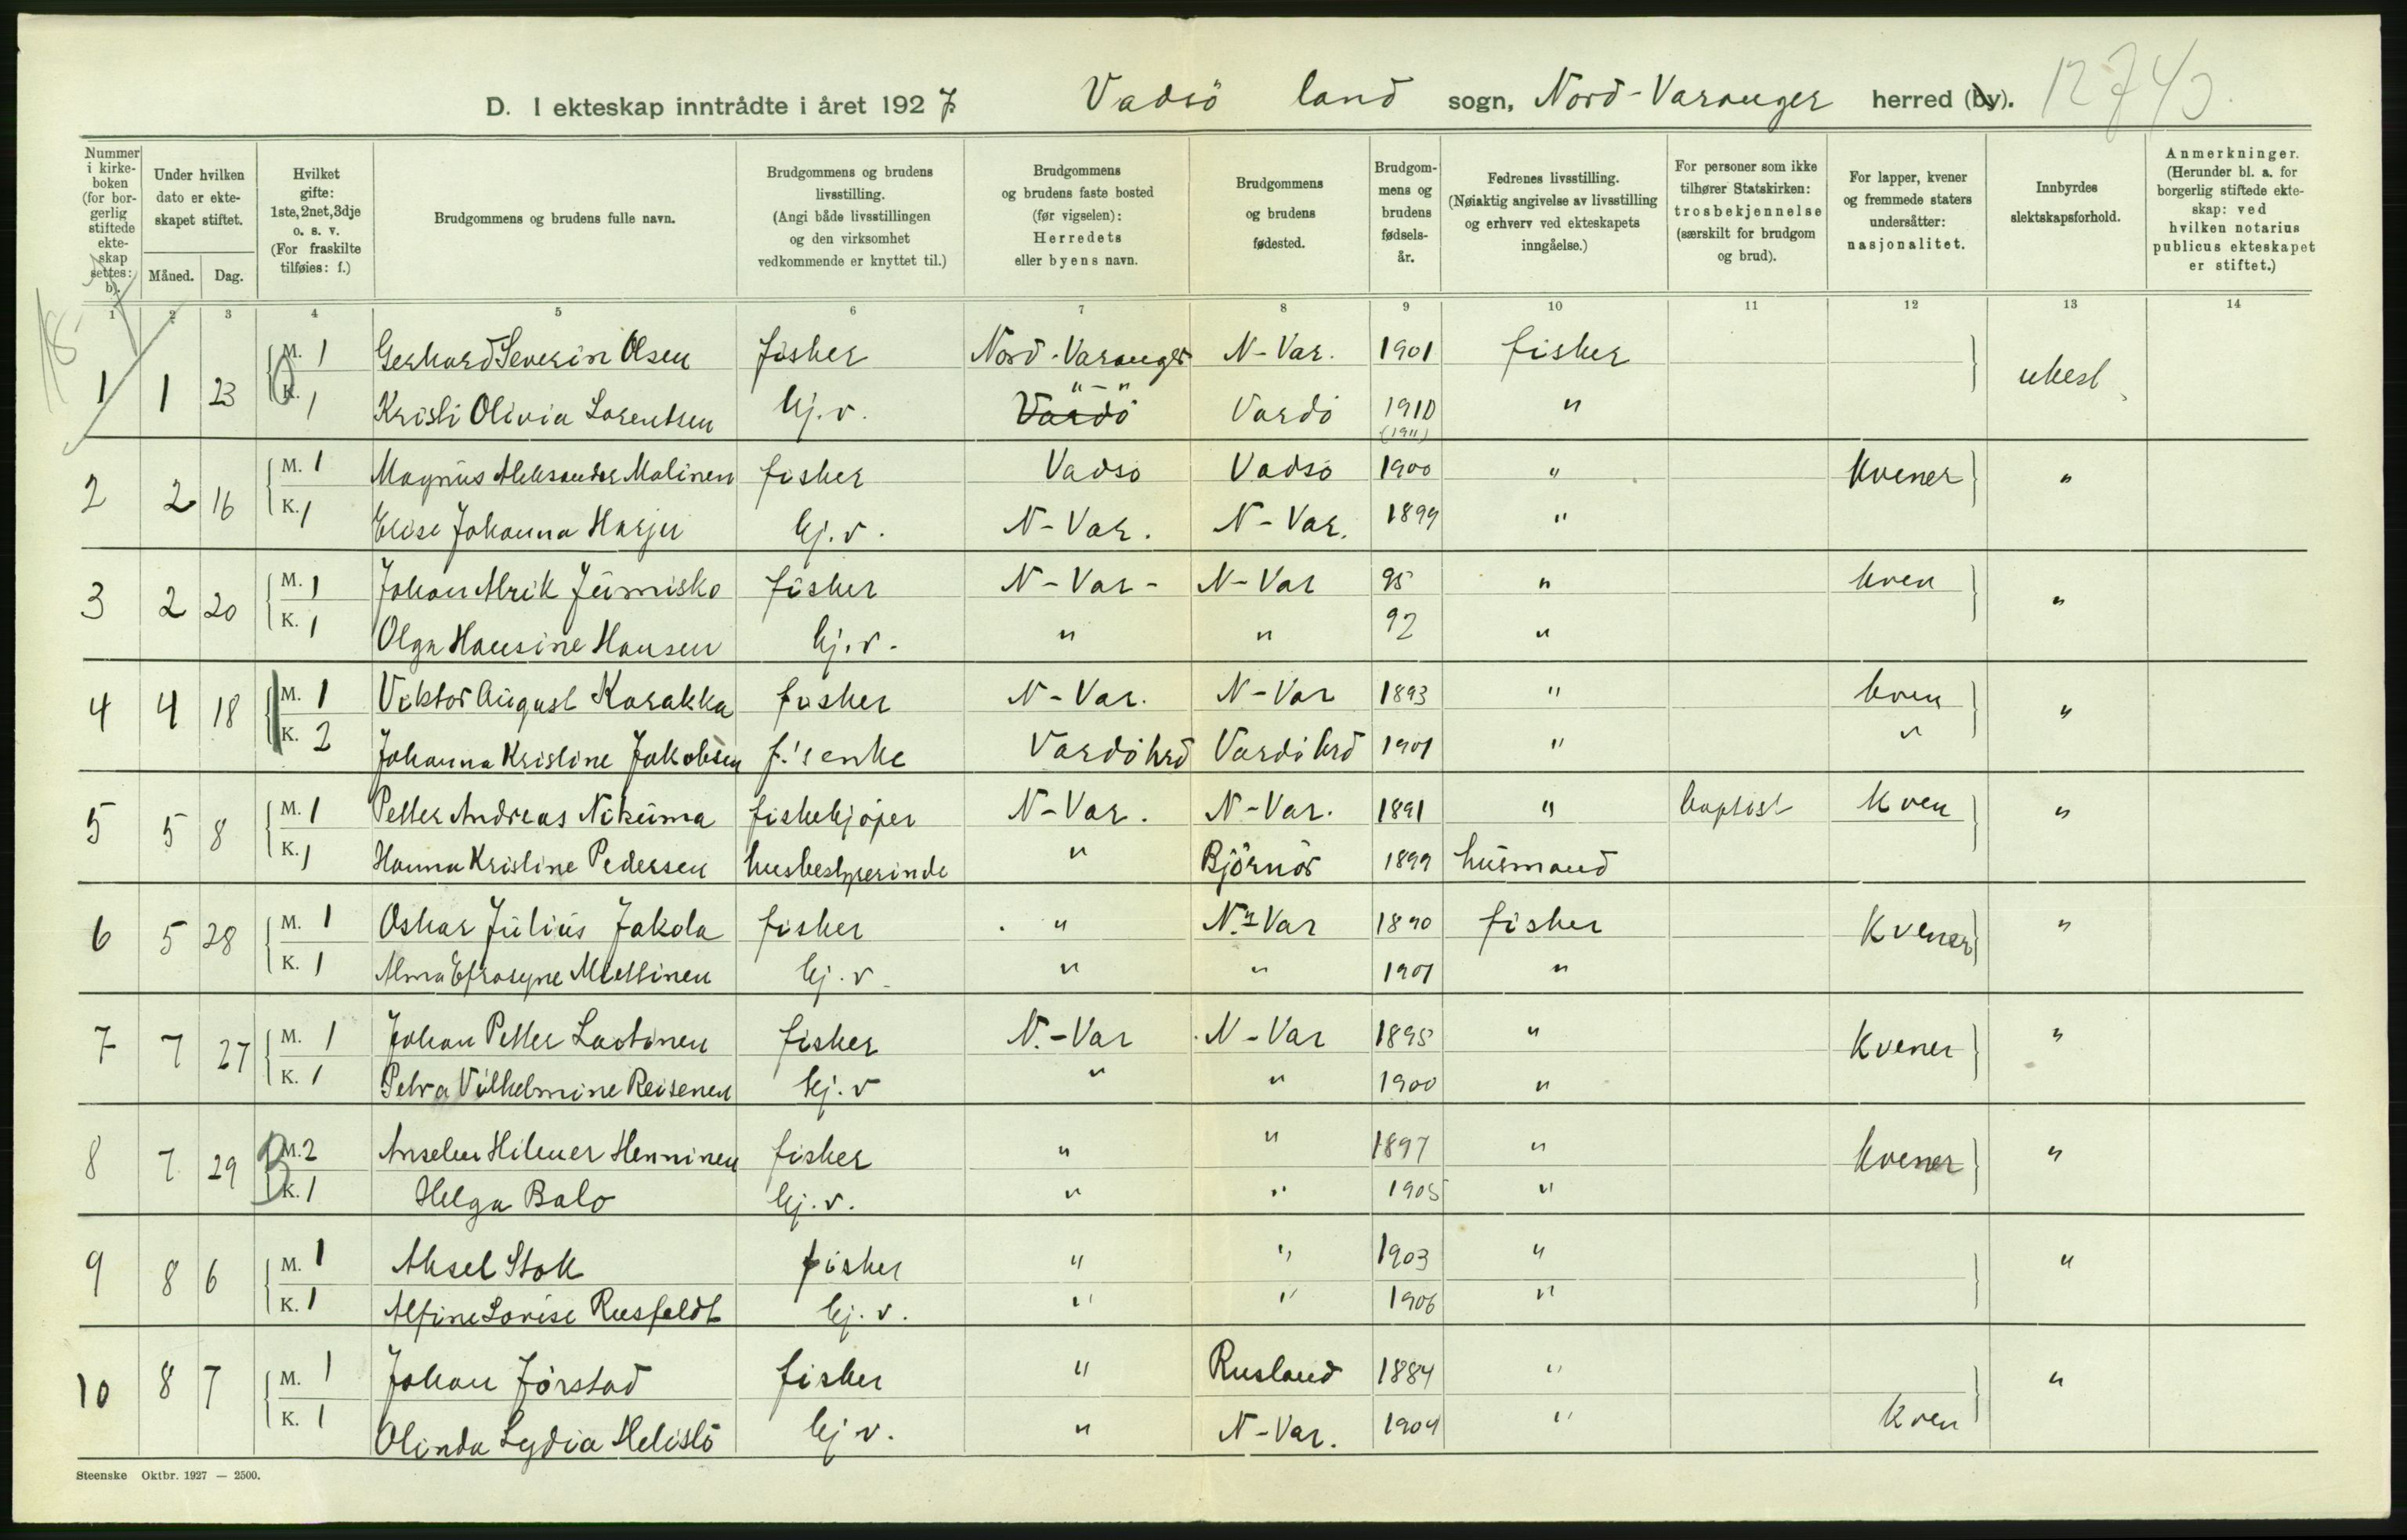 D. I ekteskap inntrådte i året 1927. Vadsö land sogn, Nord-Varanger herred (by). 12743
Nummer i kirke-boken (for bor-gerlig stiftede ekte-skap settes: b).
Under hvilken dato er ekte-skapet stiftet.
Måned. Dag.
Hvilket gifte: 1ste, 2net, 3dje o. s. v. (For fraskilte tilføies: f.)
Brudgommens og brudens fulle navn.
Brudgommens og brudens livsstilling. (Angi både livsstillingen og den virksomhet vedkommende er knyttet til.)
Brudgommens og brudens faste bosted (før vigselen): Herredets eller byens navn.
Brudgommens og brudens fødested.
Brudgom-mens og brudens fødsels-år.
Fedrenes livsstilling. (Nøiaktig angivelse av livsstilling og erhverv ved ekteskapets inngåelse.)
For personer som ikke tilhører Statskirken: trosbekjennelse (særskilt for brudgom og brud).
For lapper, kvener og fremmede staters undersåtter: nasjonalitet.
Innbyrdes slektskapsforhold.
Anmerkninger. (Herunder bl. a. for borgerlig stiftede ekte-skap: ved hvilken notarius publicus ekteskapet er stiftet.)
1 2 3 4 5 6 7 8 9 10 11 12 13 14
1 1 23 M. 1 Gerhard Severin Olsen fisher Nord-Varanger N-Var. 1901 fisher ubesl.
K. 1 Kristi Olivia Lorentsen hj. v. Vardö "-" Vardö 1910 (1911) "
2 2 16 M. 1 Magnus Aleksander Malinen fisher Vadsö Vadsö 1900 " kvener "
K. 1 Elise Johanna Harju hj. v. N-Var. N-Var. 1899 "
3 2 20 M. 1 Johan Alrik Jumisko fisher N-Var- N-Var 95 " kven "
K. 1 Olga Hansine Hansen hj. v. " " 92 "
4 4 18 M. 1 Viktor August Karakka fisher N-Var. N-Var 1893 " kven "
K. 2 Johanna Kristine Jakobsen f.'s enke Vardö hrd Vardö hrd 1901 " "
5 5 8 M. 1 Petter Andreas Nikuma fiskekjøper N-Var. N-Var. 1891 " baptist Kven "
K. 1 Hanna Kristine Pedersen husbestyrerinde " Björnör 1899 husmand
6 5 28 M. 1 Oskar Julius Jakola fisher " N.-Var 1890 fisher Kvener "
K. 1 Alma Efrosyne Miettinen hj. v. " " 1901 "
7 7 27 M. 1 Johan Petter Lantinen fisher N.-Var N-Var 1895 " Kvener "
K. 1 Petra Vilhelmine Reisenen hj. v " " 1900 "
8 7 29 M. 2 Anselm Hilmer Henninen fisher " " 1897 " kvener "
K. 1 Helga Balo hj. v. " " 1905 "
9 8 6 M. 1 Aksel Stok fisher " " 1903 " "
K. 1 Alfine Lovise Rusfeldt hj. v. " " 1906 "
10 8 7 M. 1 Johan Jörstad fisher " Rusland 1884 " "
K. 1 Olinda Lydia Helistö hj v. " N-Var. 1904 " Kven
Steenske Oktbr. 1927 — 2500.